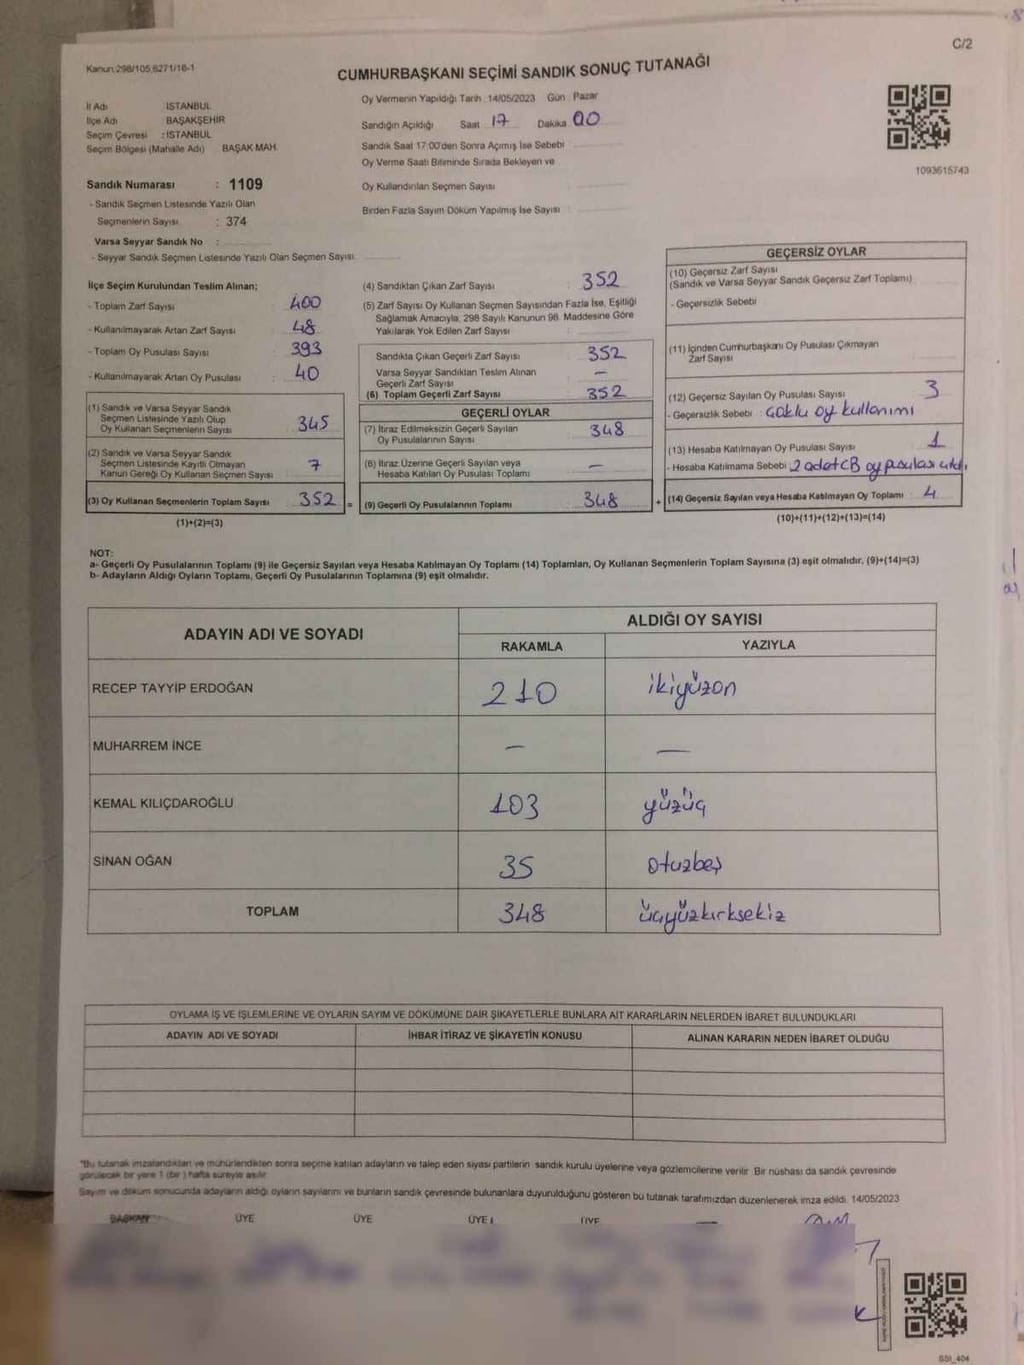 C/2
Kanun:298/105,6271/16-1
CUMHURBAŞKANI SEÇİMİ SANDIK SONUÇ TUTANAĞI
1093615743
İl Adı ISTANBUL
İlçe Adı BAŞAKŞEHİR
Seçim Çevresi : ISTANBUL
Seçim Bölgesi (Mahalle Adı) BAŞAK MAH.
Sandık Numarası : 1109
- Sandık Seçmen Listesinde Yazılı Olan
Seçmenlerin Sayısı : 374
Varsa Seyyar Sandık No :
- Seyyar Sandık Seçmen Listesinde Yazılı Olan Seçmen Sayısı
Oy Vermenin Yapıldığı Tarih : 14/05/2023 Gün : Pazar
Sandığın Açıldığı Saat 17 Dakika 00
Sandık Saat 17:00'den Sonra Açımış İse Sebebi
Oy Verme Saati Bitiminde Sırada Bekleyen ve
Oy Kullandırılan Seçmen Sayısı
Birden Fazla Sayım Döküm Yapılmış İse Sayısı
İlçe Seçim Kurulundan Teslim Alınan;
- Toplam Zarf Sayısı 400
- Kullanılmayarak Artan Zarf Sayısı 48
- Toplam Oy Pusulası Sayısı 393
- Kullanılmayarak Artan Oy Pusulası 40
(1) Sandık ve Varsa Seyyar Sandık
Seçmen Listesinde Yazılı Olup
Oy Kullanan Seçmenlerin Sayısı 345
(2) Sandık ve Varsa Seyyar Sandık
Seçmen Listesinde Kayıtlı Olmayan
Kanun Gereği Oy Kullanan Seçmen Sayısı 7
(3) Oy Kullanan Seçmenlerin Toplam Sayısı 352 =
(1)+(2)=(3)
(4) Sandıktan Çıkan Zarf Sayısı 352
(5) Zarf Sayısı Oy Kullanan Seçmen Sayısından Fazla İse, Eşitliği
Sağlamak Amacıyla, 298 Sayılı Kanunun 98. Maddesine Göre
Yakılarak Yok Edilen Zarf Sayısı :
Sandıkta Çıkan Geçerli Zarf Sayısı 352
Varsa Seyyar Sandıktan Teslim Alınan
Geçerli Zarf Sayısı —
(6) Toplam Geçerli Zarf Sayısı 352
GEÇERLİ OYLAR
(7) İtiraz Edilmeksizin Geçerli Sayılan
Oy Pusulalarının Sayısı 348
(8) İtiraz Üzerine Geçerli Sayılan veya
Hesaba Katılan Oy Pusulası Toplamı —
(9) Geçerli Oy Pusulalarının Toplamı 348 +
GEÇERSİZ OYLAR
(10) Geçersiz Zarf Sayısı
(Sandık ve Varsa Seyyar Sandık Geçersiz Zarf Toplamı)
- Geçersizlik Sebebi
(11) İçinden Cumhurbaşkanı Oy Pusulası Çıkmayan
Zarf Sayısı
(12) Geçersiz Sayılan Oy Pusulası Sayısı 3
- Geçersizlik Sebebi : Çoklu oy kullanımı
(13) Hesaba Katılmayan Oy Pusulası Sayısı 1
- Hesaba Katılmama Sebebi 2 adet CB oy pusulası çıktı
(14) Geçersiz Sayılan veya Hesaba Katılmayan Oy Toplamı 4
(10)+(11)+(12)+(13)=(14)
NOT:
a- Geçerli Oy Pusulalarının Toplamı (9) ile Geçersiz Sayılan veya Hesaba Katılmayan Oy Toplamı (14) Toplamları, Oy Kullanan Seçmenlerin Toplam Sayısına (3) eşit olmalıdır, (9)+(14)=(3)
b- Adayların Aldığı Oyların Toplamı, Geçerli Oy Pusulalarının Toplamına (9) eşit olmalıdır.
ADAYIN ADI VE SOYADI ALDIĞI OY SAYISI
RAKAMLA YAZIYLA
RECEP TAYYİP ERDOĞAN 210 ikiyüzon
MUHARREM İNCE — —
KEMAL KILIÇDAROĞLU 103 yüzüç
SİNAN OĞAN 35 otuzbeş
TOPLAM 348 üçyüzkırksekiz
OYLAMA İŞ VE İŞLEMLERİNE VE OYLARIN SAYIM VE DÖKÜMÜNE DAİR ŞİKAYETLERLE BUNLARA AİT KARARLARIN NELERDEN İBARET BULUNDUKLARI
ADAYIN ADI VE SOYADI İHBAR İTİRAZ VE ŞİKAYETİN KONUSU ALINAN KARARIN NEDEN İBARET OLDUĞU
"Bu tutanak imzalandıktan ve mühürlendikten sonra seçime katılan adayların ve talep eden siyasi partilerin sandık kurulu üyelerine veya gözlemcilerine verilir. Bir nüshası da sandık çevresinde
görülecek bir yere 1 (bir) hafta süreyle asılır.
Sayım ve döküm sonucunda adayların aldığı oyların sayılarını ve bunların sandık çevresinde bulunanlara duyurulduğunu gösteren bu tutanak tarafımızdan düzenlenerek imza edildi. 14/05/2023
BAŞKAN ÜYE ÜYE ÜYE ÜYE